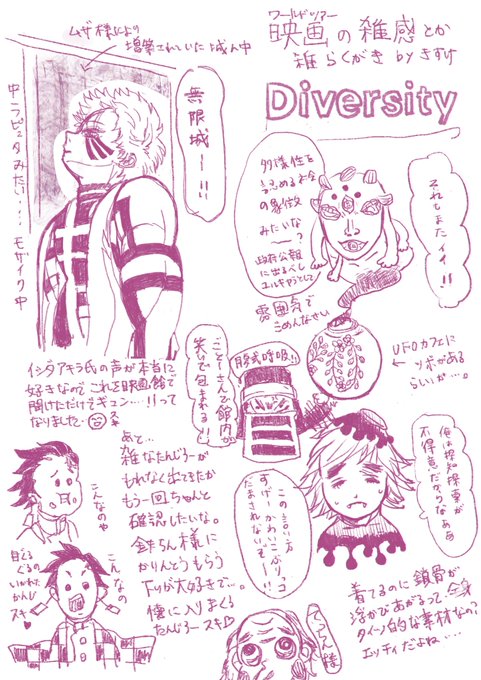 ワールドツアー
映画の雑感とか
雑らくがき by きすけ
Diversity
ムザ様により
増築されていた城ん中
中ラピュタみたい…… モザイク中
無限城ー!!
多様性を
認める社会
の象徴
みたいな
〜?
政府公報
に出るべし
それもまたイイ!!
雰囲気で
ごめんなさい
UFOカフェに
ツボがある
らしいが…。
イシダアキラ氏の声が本当に
好きなので これを映画館で
聞けただけでギュン…!!って
なりました。
館内が
笑いで包まれる!!
俺は探知探索が
不得意だからなああ
この言い方
すげーかわいこぶりっコ
だまされないぞー!!
あと…
雑なたんじろーが
もれなく出てきたか
もう一回ちゃんと
確認したいな。
鉄ちん様に
かりんとうもらう
下りが大好きで…。
懐に入りまくる
たんじろースキ
こんなのや
こんなの
スキ
着てるのに鎖骨が
浮かびあがるって、全身
タイツ的な素材なの?
エッティだよね……